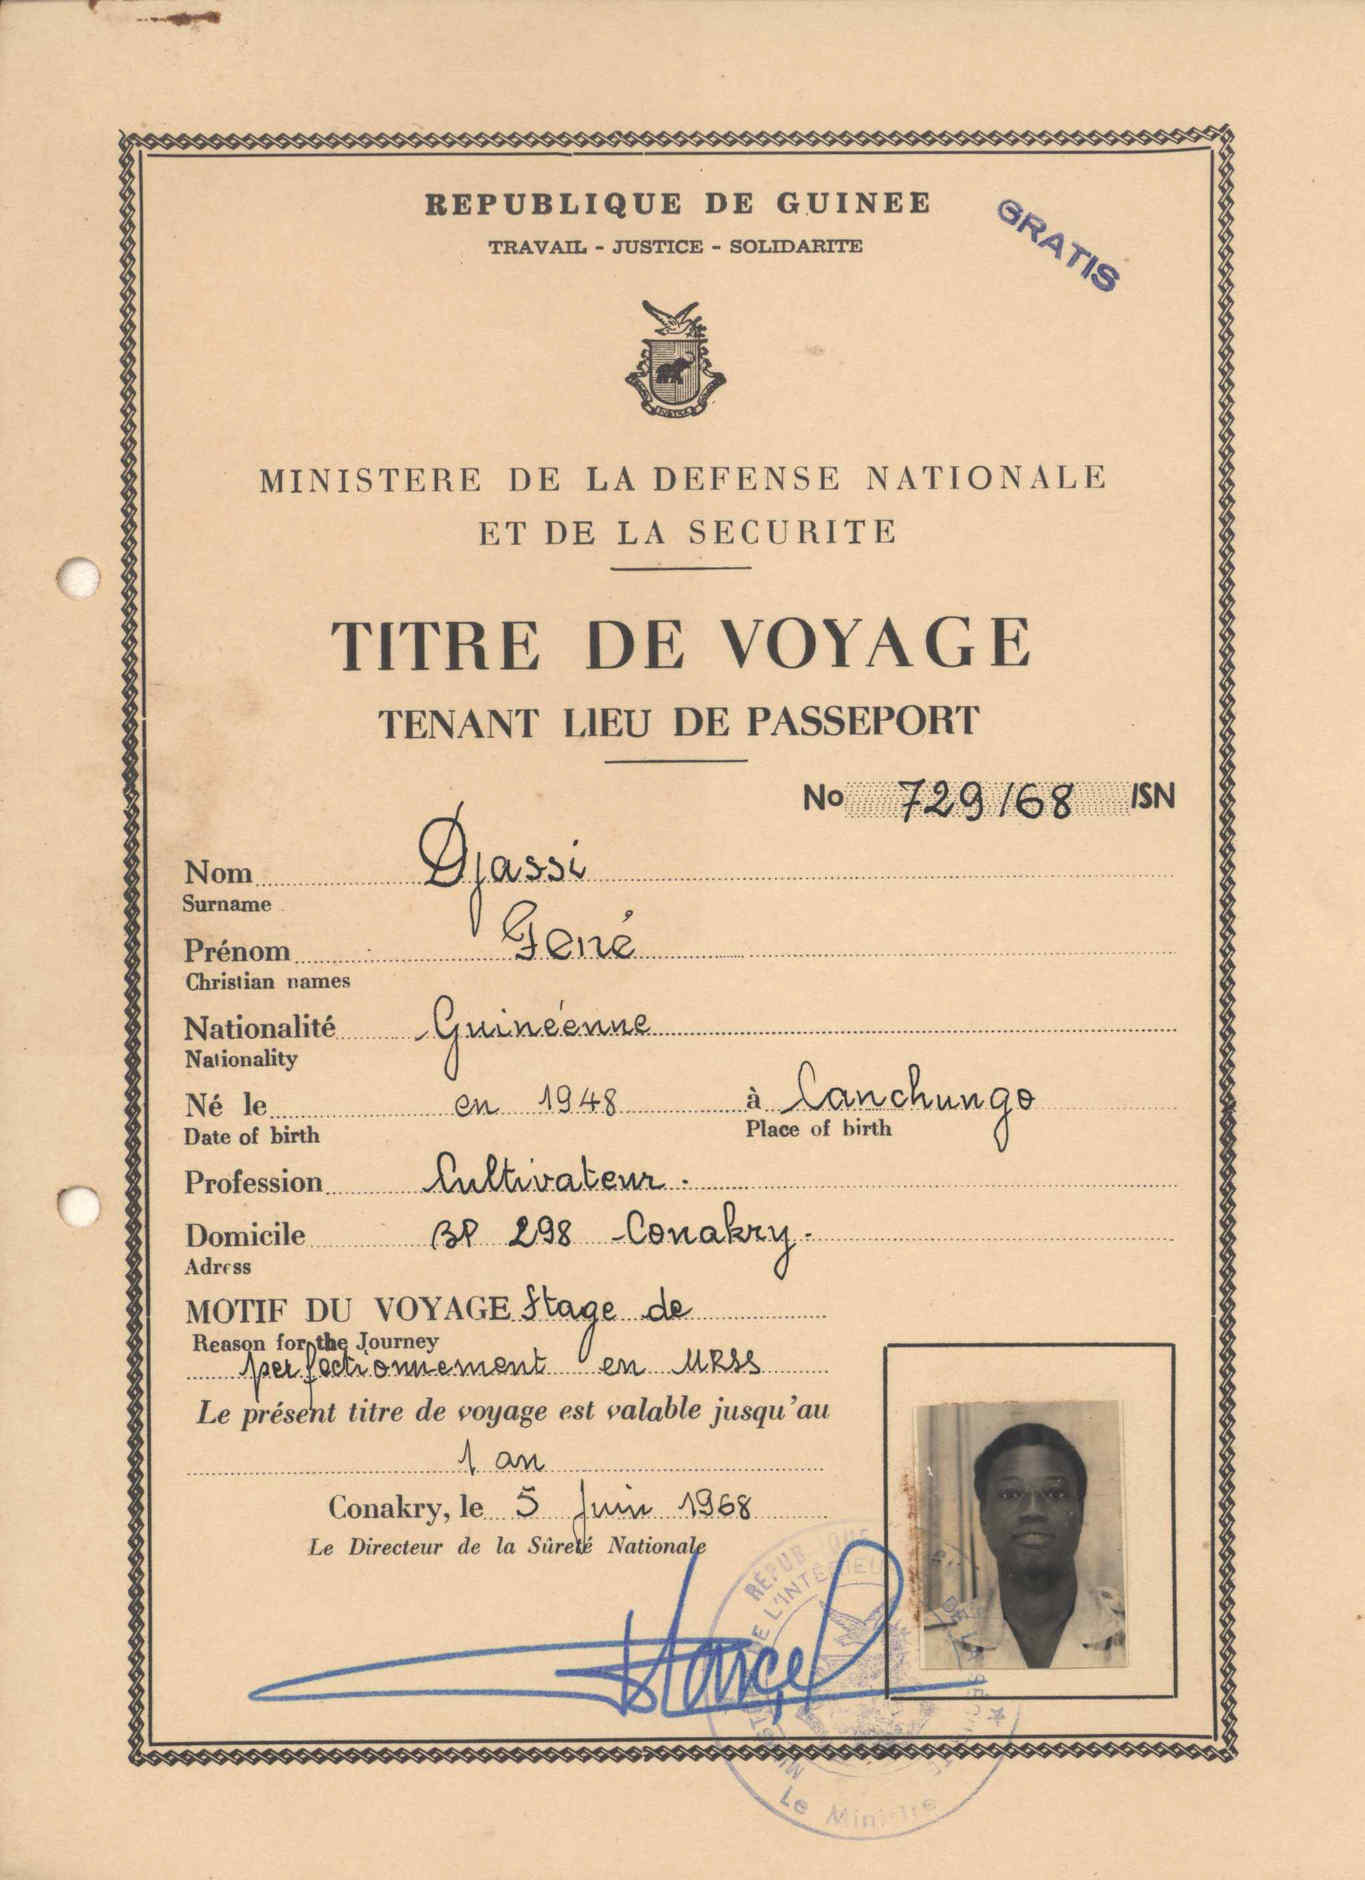 REPUBLIQUE DE GUINEE
TRAVAIL - JUSTICE - SOLIDARITE
GRATIS
MINISTERE DE LA DEFENSE NATIONALE
ET DE LA SECURITE
TITRE DE VOYAGE
TENANT LIEU DE PASSEPORT
No 729/68 /SN
Nom Djassi
Surname
Prénom Fené
Christian names
Nationalité Guinéenne
Nationality
Né le en 1948 à Canchungo
Date of birth Place of birth
Profession Cultivateur.
Domicile BP 298 Conakry.
Adress
MOTIF DU VOYAGE Stage de
Reason for the Journey
perfectionnement en URSS
Le présent titre de voyage est valable jusqu'au
1 an
Conakry, le 5 Juin 1968
Le Directeur de la Sûreté Nationale
REPUBLIQUE
DE L'INTERIEUR
DE LA
Le Ministre